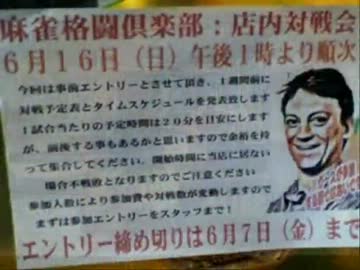 麻雀格闘倶楽部：店内対戦会
６月１６日（日）午後１時より順次
今回は事前エントリーとさせて頂き、１週間前に
対戦予定表とタイムスケジュールを発表致します
１試合当たりの予定時間は２０分を目安にします
が、前後する事もあるかと思いますので余裕を持
って集合してください。開始時間に当店に居ない
場合不戦敗となりますのでご注意ください
参加人数により参加費や対戦数が変動しますので
まずは参加エントリーをスタッフまで！
エントリー締め切りは６月７日（金）まで